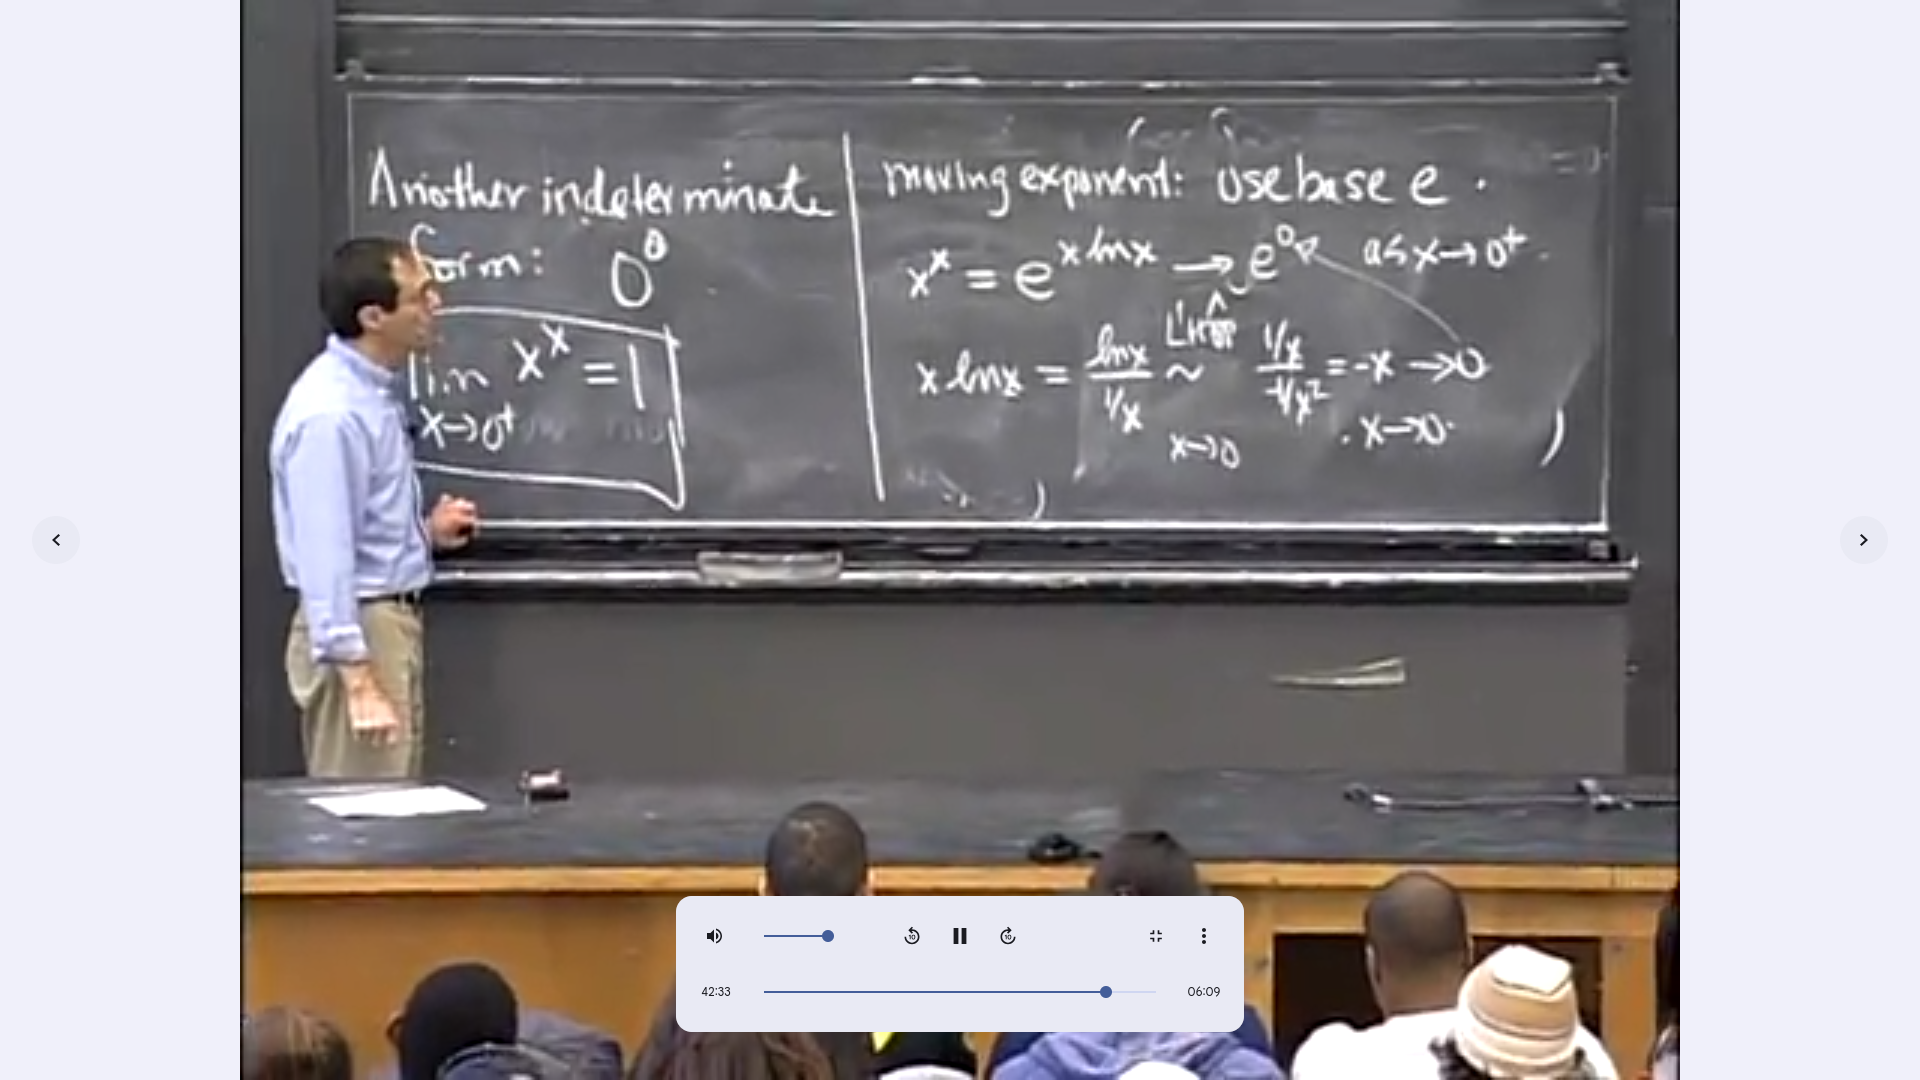 Another indeterminate
form: 0⁰
lim x^x = 1
x→0⁺
moving exponent: use base e.
x^x = e^(x ln x) → e⁰ as x→0⁺.
x ln x = ln x / 1/x ~ L'Hôp 1/x / -1/x² = -x →0
x→0
x→0
42:33
06:09